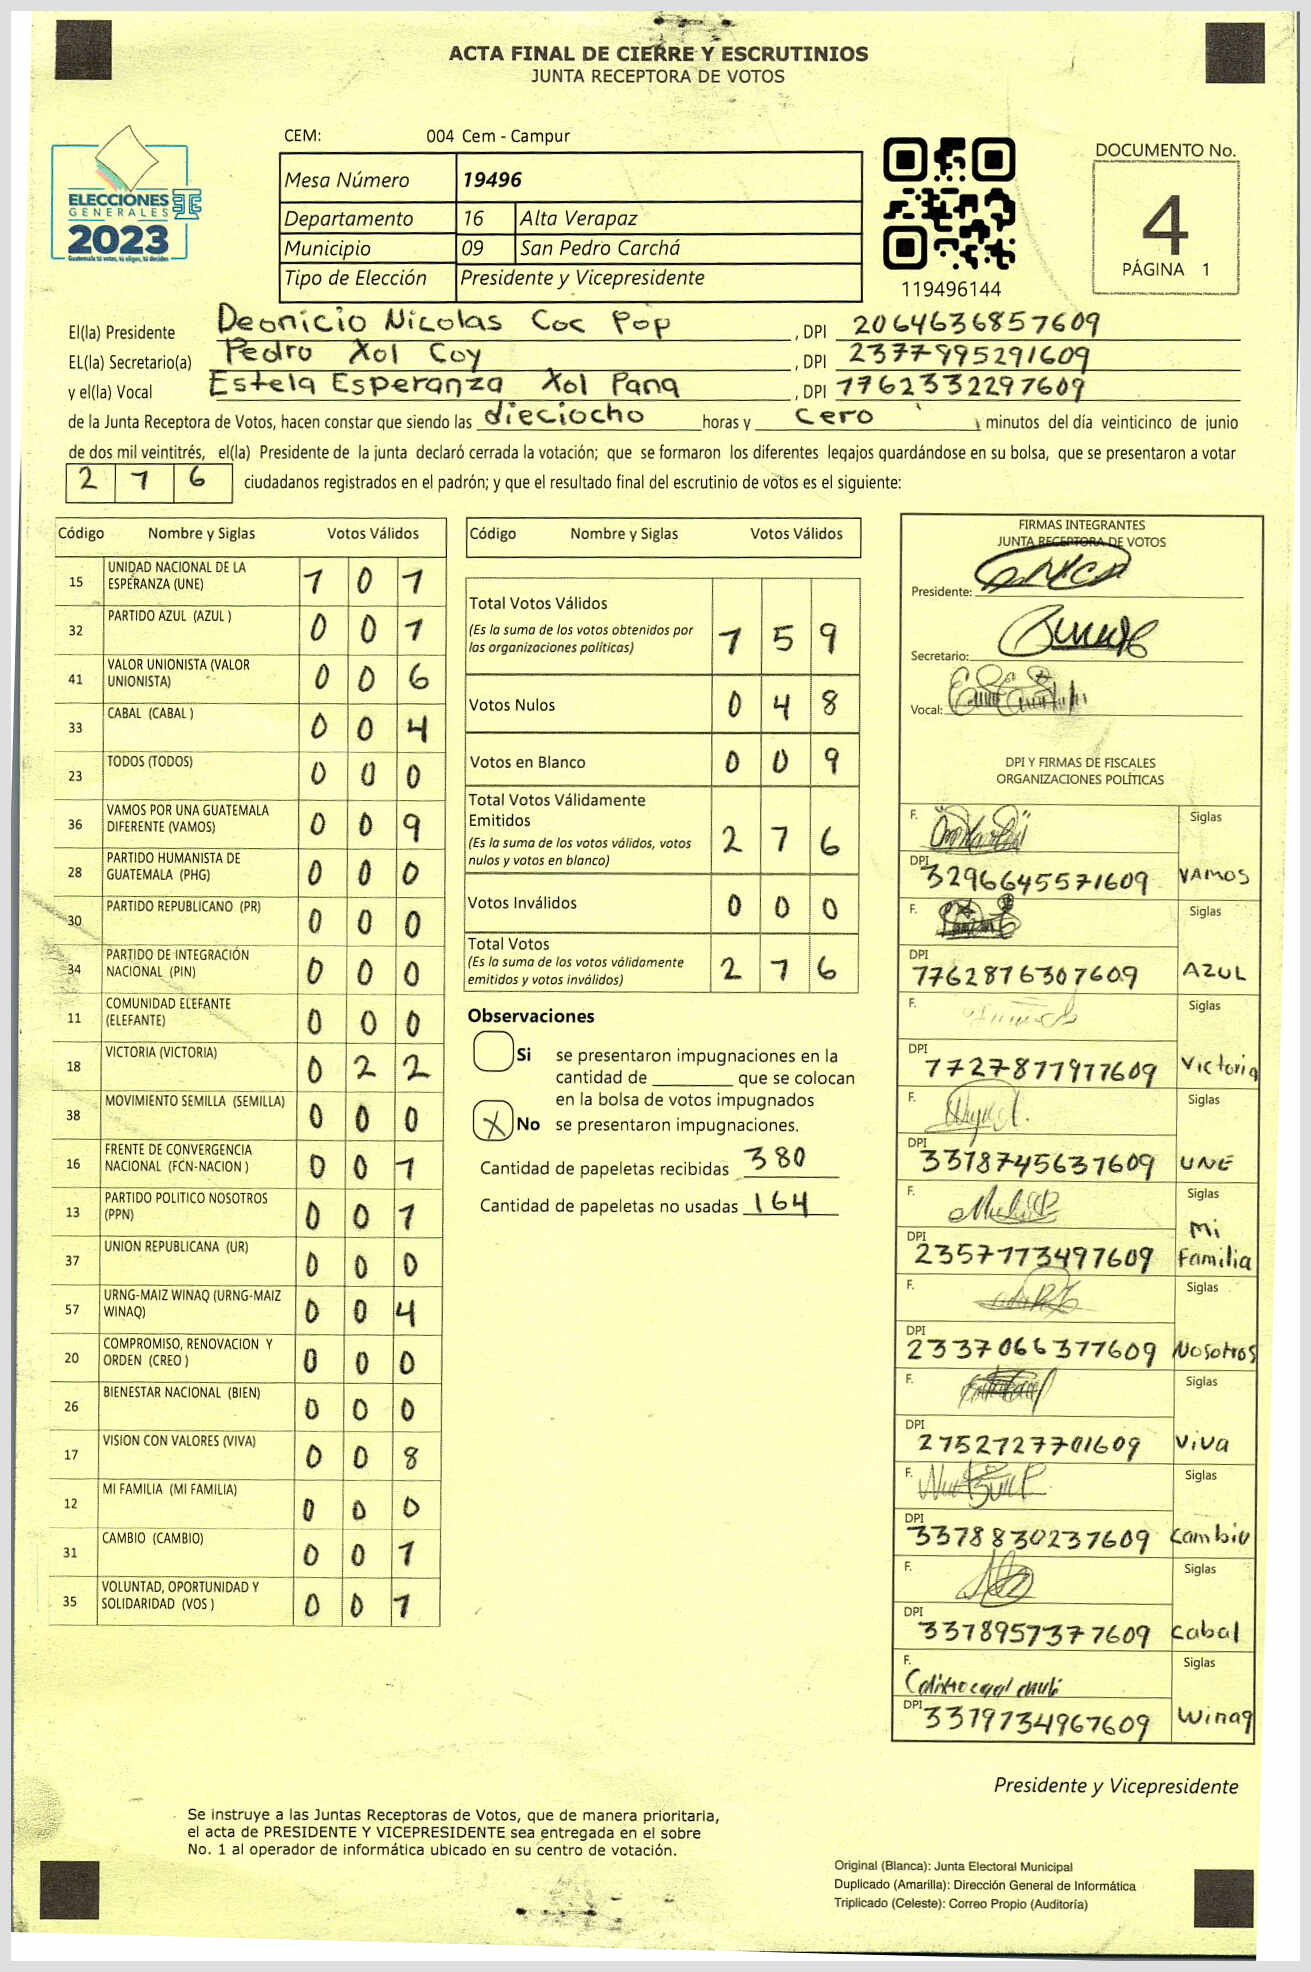 ACTA FINAL DE CIERRE Y ESCRUTINIOS
JUNTA RECEPTORA DE VOTOS
CEM: 004 Cem - Campur
ELECCIONES
GENERALES
2023
Guatemala tú votas, tú eliges, tú decides
Mesa Número 19496
Departamento 16 Alta Verapaz
Municipio 09 San Pedro Carchá
Tipo de Elección Presidente y Vicepresidente
119496144
DOCUMENTO No.
4
PÁGINA 1
El(la) Presidente Deonicio Nicolas Coc Pop , DPI 2064636857609
EL(la) Secretario(a) Pedro Xol Coy , DPI 2377995291609
y el(la) Vocal Estela Esperanza Xol Pana , DPI 1762332297609
de la Junta Receptora de Votos, hacen constar que siendo las dieciocho horas y cero minutos del día veinticinco de junio
de dos mil veintitrés, el(la) Presidente de la junta declaró cerrada la votación; que se formaron los diferentes legajos quardándose en su bolsa, que se presentaron a votar
2 7 6 ciudadanos registrados en el padrón; y que el resultado final del escrutinio de votos es el siguiente:
Código Nombre y Siglas Votos Válidos
15 UNIDAD NACIONAL DE LA ESPERANZA (UNE) 1 0 1
32 PARTIDO AZUL (AZUL ) 0 0 1
41 VALOR UNIONISTA (VALOR UNIONISTA) 0 0 6
33 CABAL (CABAL ) 0 0 4
23 TODOS (TODOS) 0 0 0
36 VAMOS POR UNA GUATEMALA DIFERENTE (VAMOS) 0 0 9
28 PARTIDO HUMANISTA DE GUATEMALA (PHG) 0 0 0
30 PARTIDO REPUBLICANO (PR) 0 0 0
34 PARTIDO DE INTEGRACIÓN NACIONAL (PIN) 0 0 0
11 COMUNIDAD ELEFANTE (ELEFANTE) 0 0 0
18 VICTORIA (VICTORIA) 0 2 2
38 MOVIMIENTO SEMILLA (SEMILLA) 0 0 0
16 FRENTE DE CONVERGENCIA NACIONAL (FCN-NACION ) 0 0 1
13 PARTIDO POLITICO NOSOTROS (PPN) 0 0 1
37 UNION REPUBLICANA (UR) 0 0 0
57 URNG-MAIZ WINAQ (URNG-MAIZ WINAQ) 0 0 4
20 COMPROMISO, RENOVACION Y ORDEN (CREO ) 0 0 0
26 BIENESTAR NACIONAL (BIEN) 0 0 0
17 VISION CON VALORES (VIVA) 0 0 8
12 MI FAMILIA (MI FAMILIA) 0 0 0
31 CAMBIO (CAMBIO) 0 0 1
35 VOLUNTAD, OPORTUNIDAD Y SOLIDARIDAD (VOS ) 0 0 1
Código Nombre y Siglas Votos Válidos
Total Votos Válidos
(Es la suma de los votos obtenidos por
las organizaciones políticas) 1 5 9
Votos Nulos 0 4 8
Votos en Blanco 0 0 9
Total Votos Válidamente
Emitidos
(Es la suma de los votos válidos, votos
nulos y votos en blanco) 2 7 6
Votos Inválidos 0 0 0
Total Votos
(Es la suma de los votos válidamente
emitidos y votos inválidos) 2 7 6
Observaciones
Si se presentaron impugnaciones en la
cantidad de ________ que se colocan
en la bolsa de votos impugnados
X No se presentaron impugnaciones.
Cantidad de papeletas recibidas 380
Cantidad de papeletas no usadas 164
FIRMAS INTEGRANTES
JUNTA RECEPTORA DE VOTOS
Presidente:
Secretario:
Vocal:
DPI Y FIRMAS DE FISCALES
ORGANIZACIONES POLÍTICAS
F. Siglas
DPI 3296645571609 VAMOS
F. Siglas
DPI 1762876307609 AZUL
F. Siglas
DPI 1727877977609 Victoria
F. Siglas
DPI 3378745637609 UNE
F. Siglas
DPI 2357773497609 Mi Familia
F. Siglas
DPI 2337066377609 Nosotros
F. Siglas
DPI 2752727701609 ViVa
F. Siglas
DPI 3378830237609 Cambio
F. Siglas
DPI 3378957377609 Cabal
F. Siglas
DPI 3379734967609 Winaq
Presidente y Vicepresidente
Se instruye a las Juntas Receptoras de Votos, que de manera prioritaria,
el acta de PRESIDENTE Y VICEPRESIDENTE sea entregada en el sobre
No. 1 al operador de informática ubicado en su centro de votación.
Original (Blanca): Junta Electoral Municipal
Duplicado (Amarilla): Dirección General de Informática
Triplicado (Celeste): Correo Propio (Auditoría)